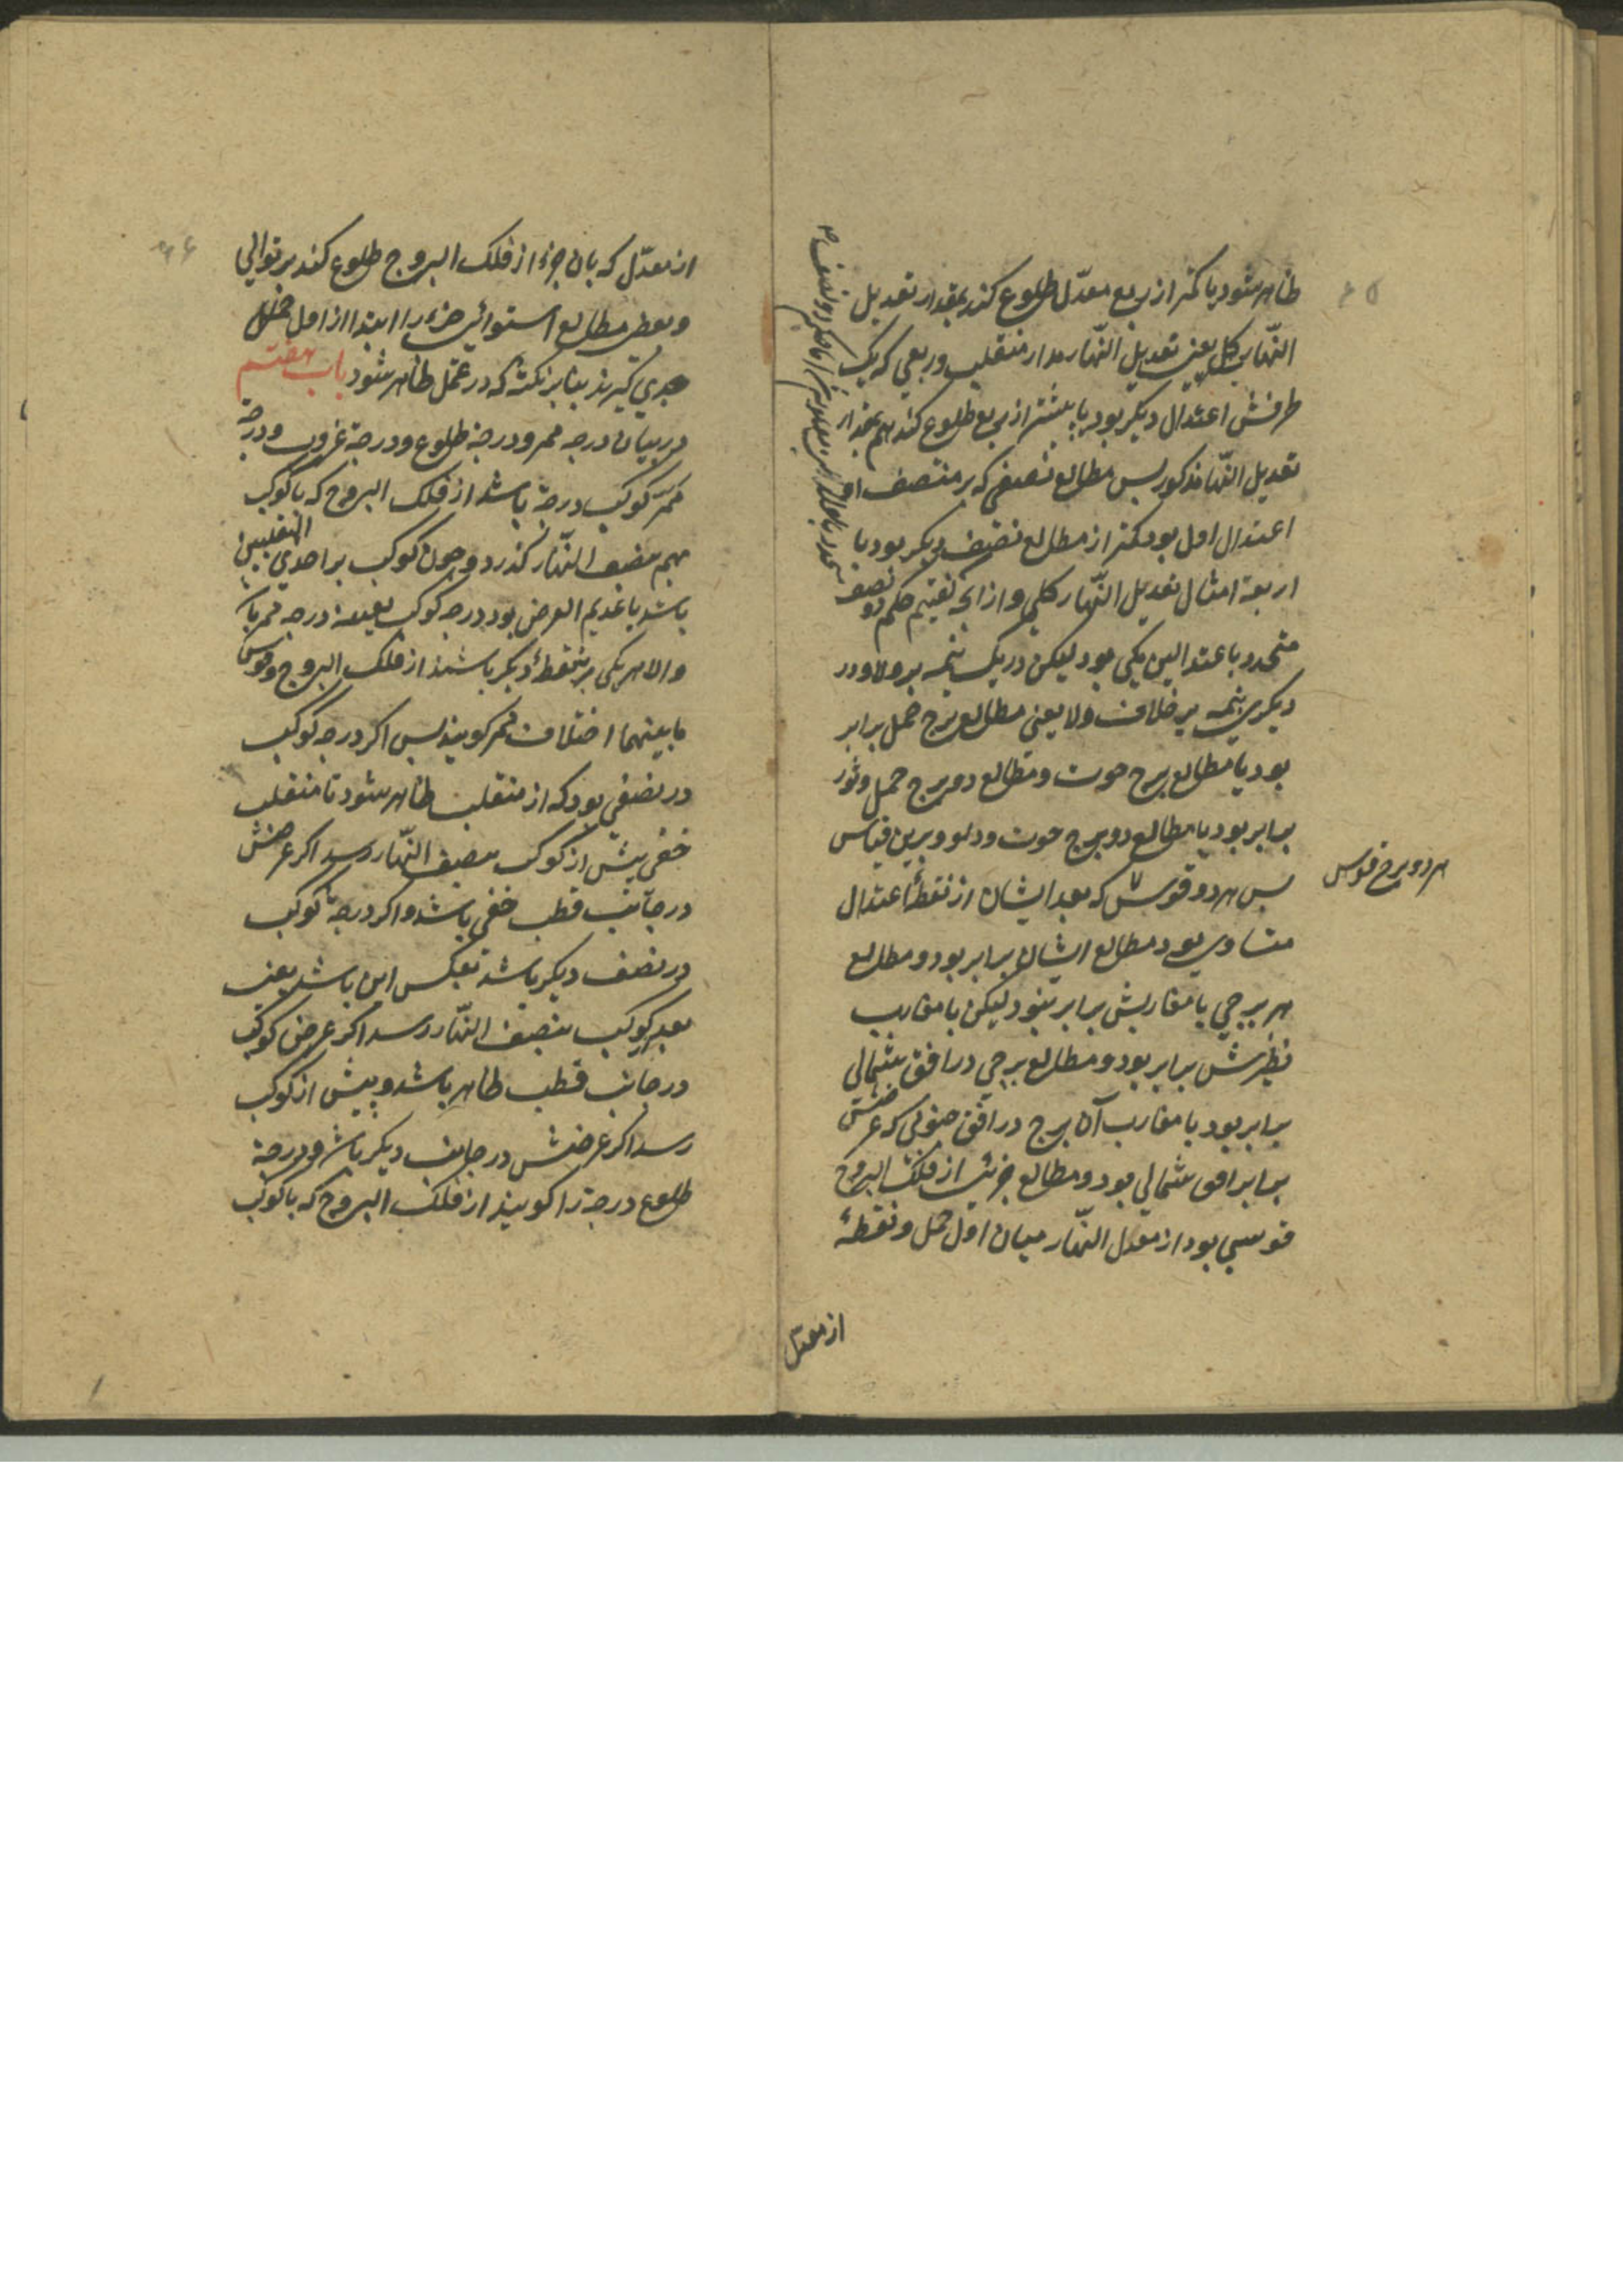 ظاهر شود با کمتر از ربع معدّل طلوع کند بمقدار تعدیل
النّهار کلی یعنی تعدیل النّهار مدار منقلب و ربعی که یک
طرفش اعتدال دیگر بود با بیشتر از ربع طلوع کند بهم مقدار
تعدیل النّهار مذکور پس مطالع نصفی که بر منتصف او
اعتدال اول بود کمتر از مطالع نصف دیگر بود با
اربعة امثال تعدیل النّهار کلی و از آنکه تقیم حکم دو نصف
متحدد باعتدالین یکی بود لیکن در یک نیمه بر ولا و در
دیگری نیمه بر خلاف ولا یعنی مطالع برج حمل برابر
بود با مطالع برج حوت و مطالع دو برج حمل و ثور
برابر بود با مطالع دو برج حوت و دلو و برین قیاس
پس هر دو قوس که بعد ایشان از نقطهٔ اعتدال
متساوی بود مطالع ایشان برابر بود و مطالع
هر برجی با مغاربش برابر نبود لیکن با مغارب
نظیرش برابر بود و مطالع برجی در افق شمالی
برابر بود با مغارب آن برج در افق جنوبی که عرضش
برابر افق شمالی بود و مطالع جزئی از فلک البروج
قوسی بود از معدل النّهار میان اول حمل و نقطهٔ
هر دو برج قوس
از معدّل
۶۵
از معدّل که بان جزء از فلک البروج طلوع کند بر توالی
و بعضی مطالع استوائی جزء را ابتدا از اول
جدی گیرند بنابر نکتهٔ که در عمل ظاهر شود باب هفتم
در بیان درجه ممر و درجهٔ طلوع و درجهٔ غروب و درجهٔ
ممرّ کوکب درجهٔ باشد از فلک البروج که با کوکب
بهم بنصف النّهار گذرد و چون کوکب بر احدی المنقلبین
باشد یا عدیم العرض بود درجه کوکب بعینه درجه ممر باشد
والا هر یکی بر نقطهٔ دیگر باشند از فلک البروج و قوس
ما بینهما اختلاف ممر گویند پس اگر درجه کوکب
در نصفی بود که از منقلب ظاهر شود تا منقلب
خفی پیش از کوکب بنصف النّهار رسد اگر عرضش
در جانب قطب خفی باشد و اگر درجهٔ کوکب
در نصف دیگر باشد بعکس این باشد یعنی
بعد کوکب بنصف النّهار رسد اگر عرض کوکب
در جانب قطب ظاهر باشد و پیش از کوکب
رسد اگر عرضش در جانب دیگر باشد و درجهٔ
طلوع درجهٔ را گویند از فلک البروج که با کوکب
۶۶